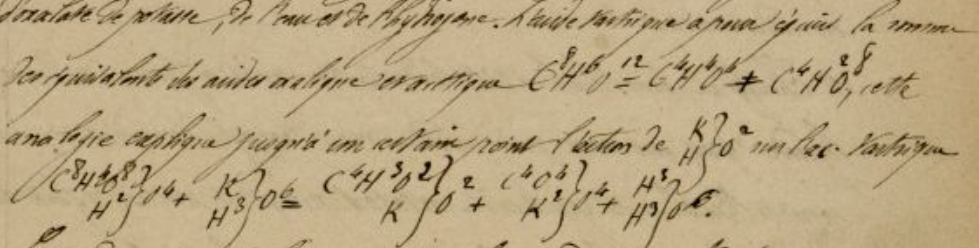 d'oxalate de potasse, de l'eau et de l'hydrogène. L'acide tartrique a pour équiv. la somme
des équivalents des acides oxalique et acétique C⁸H⁶O¹² = C⁴H⁴O⁴ + C⁴H²O⁸, cette
analogie explique jusqu'à un certain point l'action de K H } O² sur l'ac. tartrique
C⁸H⁴O⁸ H² } O⁴ + K H³ } O⁶ = C⁴H³O² K } O² + C⁴O⁴ K² } O⁴ + H³ H³ } O⁶.